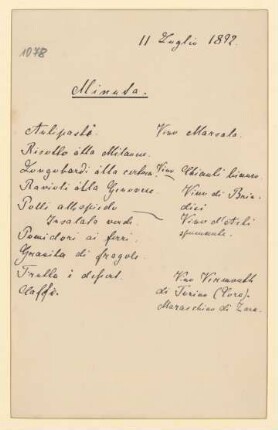 1078
11 Luglio 1892
Minuta.
Antipasto. Vino Marsala.
Risotto alla Milanese.
Longobardi alla certosa. Vino Chianti bianco
Ravioli alla Genovese. Vino di Brin-
Polli allo spiedo disi
Insalata verde. Vino d'Asti
Pomidori ai ferri. spumante.
Granita di fragole.
Frutta e desert. Vino Vermouth
Caffè. di Torino (Cora).
Maraschino di Zara.